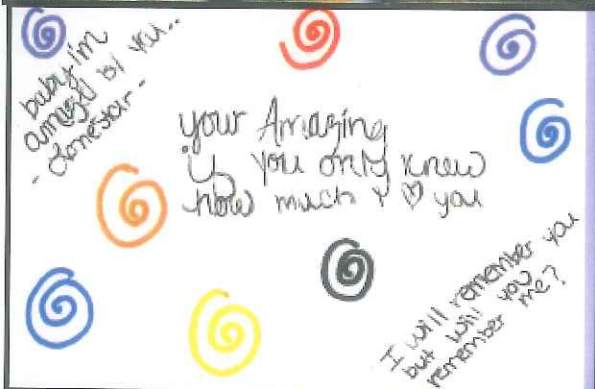 baby im
amazed by you..
- Lonestar -
your Amazing
if you only knew
how much I ♡ you
I will remember you
but will you
remember me?